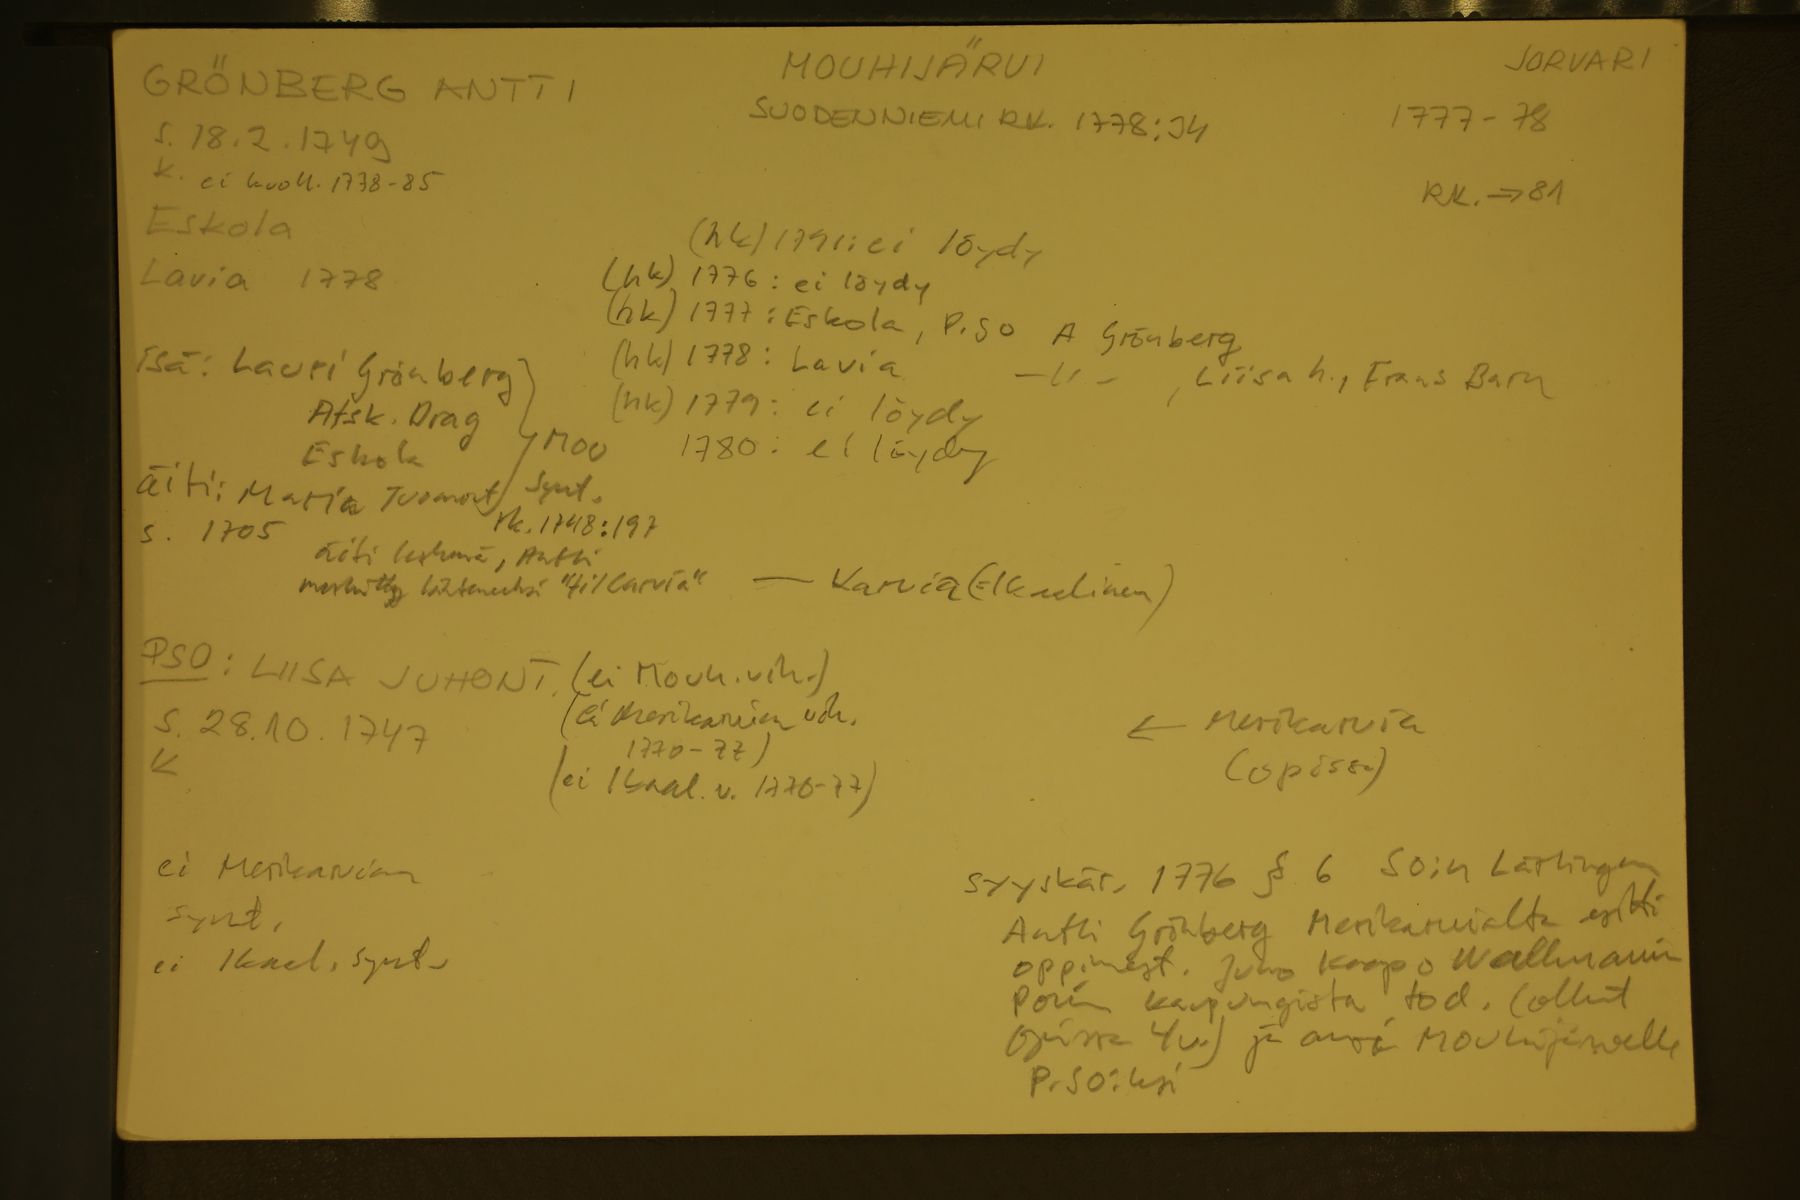 GRÖNBERG ANTTI
MOUHIJÄRVI
JORVARI
s. 18.2.1749
SUODENNIEMI RK. 1778:J4
1777-78
k. ei kuoll. 1778-85
RK. → 81
Eskola
Lavia 1778
(hk) 1791: ei löydy
(hk) 1776: ei löydy
(hk) 1777: Eskola, P.SO A Grönberg
(hk) 1778: Lavia -"- , Liisa h., Frans Barn
(hk) 1779: ei löydy
1780: ei löydy
Isä: Lauri Grönberg
Afsk. Drag
Eskola
MOU
synt.
rk. 1748:197
äiti: Maria Tuomont
s. 1705
äiti leskenä, Antti
merkitty lähteneeksi "til Carvia" — Karvia (Ikaalinen)
PSO: LIISA JUHONT. (ei Mouh. vih.)
s. 28.10.1747
k
(ei Merikarvian vih.
1770-77)
(ei Ikaal. v. 1770-77)
← Merikarvia
(opissa)
ei Merikarvian
synt.
ei Ikaal. synt.
syyskär. 1776 § 6 SO:n Lärlingen
Antti Grönberg Merikarvialta esitti
oppimest. Juho Kaapo Wallmanin
Porin kaupungista tod. (ollut
opissa 4 v.) ja anoi Mouhijärvelle
P.SO:ksi